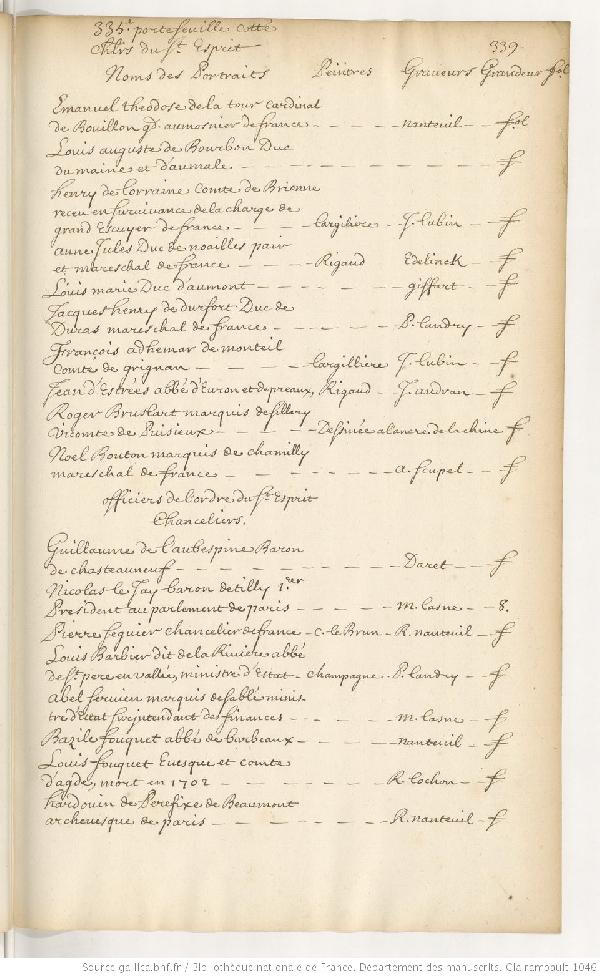 335.e portefeuille cotté
Chlrs du St Esprit
339
Noms des Portraits Peintres Graveurs Grandeur fol
Emanuel theodose de la tour cardinal
de Bouillon gd aumosnier de france - - - - nanteuil - - fol
Louis auguste de Bourbon Duc
du maine et d'aumale - - - - f
henry de Lorraine Comte de Brienne
receu en survivance de la charge de
grand Escuyer de france - - - Largiliere - J. Lubin - - f
anne Jules Duc de noailles pair
et mareschal de france - - - Rigaud Edelinck - - f
Louis marie Duc d'aumont - - - - giffart - - f
Jacques henry de durfort Duc de
Duras mareschal de france - - - - P. Landry - - f
François adhemar de monteil
Comte de grignan - - - Largilliere J. Lubin - - f
Jean d'Estrées abbé d'Euron et de preaux, Rigaud - J. audran - - f
Roger Bruslart marquis de sillery
Vicomte de Puisieux - - - Dessinée a l'ancre de la chine f
Noel Bouton marquis de chamilly
mareschal de france - - - - a. Loupel - - f
officiers de l'ordre du St Esprit
Chanceliers.
Guillaume de l'aubespine Baron
de chasteauneuf - - - - Daret - - f
Nicolas le Jay baron de tilly 1.er
President au parlement de paris - - - - m. Lasne - - 8.
Pierre seguier chancelier de france - C. le Brun - R. nanteuil - f
Louis Barbier dit de la Riviere abbé
de St pere en vallée, ministre d'Estat - champagne - P. Landry - f
abel servien marquis de sablé minis
tre d'Etat surintendant des finances - - - m. Lasne - f
Bazile fouquet abbé de barbeaux - - - - nanteuil - f
Louis fouquet Evesque et comte
d'agde, mort en 1702 - - - - R. Lochon - f
hardouin de Perefixe de Beaumont
archevesque de paris - - - - R. nanteuil - f
Source gallica.bnf.fr / Bibliothèque nationale de France. Département des manuscrits. Clairambault 1046